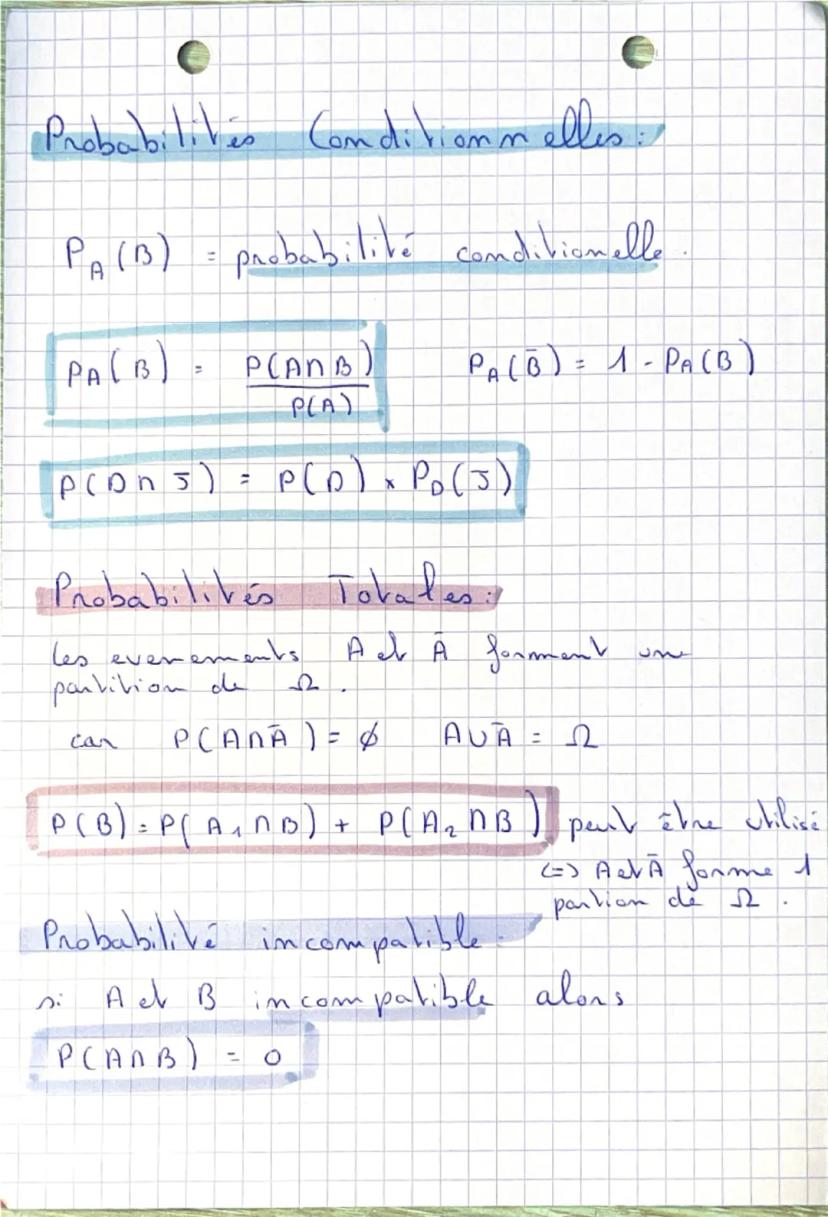 Probabilités Conditionnelles :
P_A(B) = probabilité conditionelle.
P_A(B) = P(A∩B) / P(A)    P_A(B̄) = 1 - P_A(B)
P(D∩J) = P(D) × P_D(J)
Probabilités Totales :
les evenements A et Ā forment une
partition de Ω.
car P(A∩Ā) = ∅    A∪Ā = Ω
P(B) = P(A₁∩B) + P(A₂∩B) peut être utilisé
<=> A et Ā forme 1
partion de Ω.
Probabilité incompatible.
si A et B incompatible alors
P(A∩B) = 0